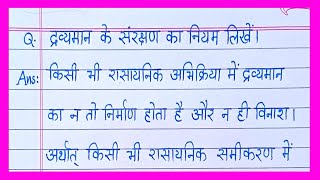 Q. द्रव्यमान के संरक्षण का नियम लिखें।
Ans: किसी भी रासायनिक अभिक्रिया में द्रव्यमान
का न तो निर्माण होता है और न ही विनाश।
अर्थात् किसी भी रासायनिक समीकरण में